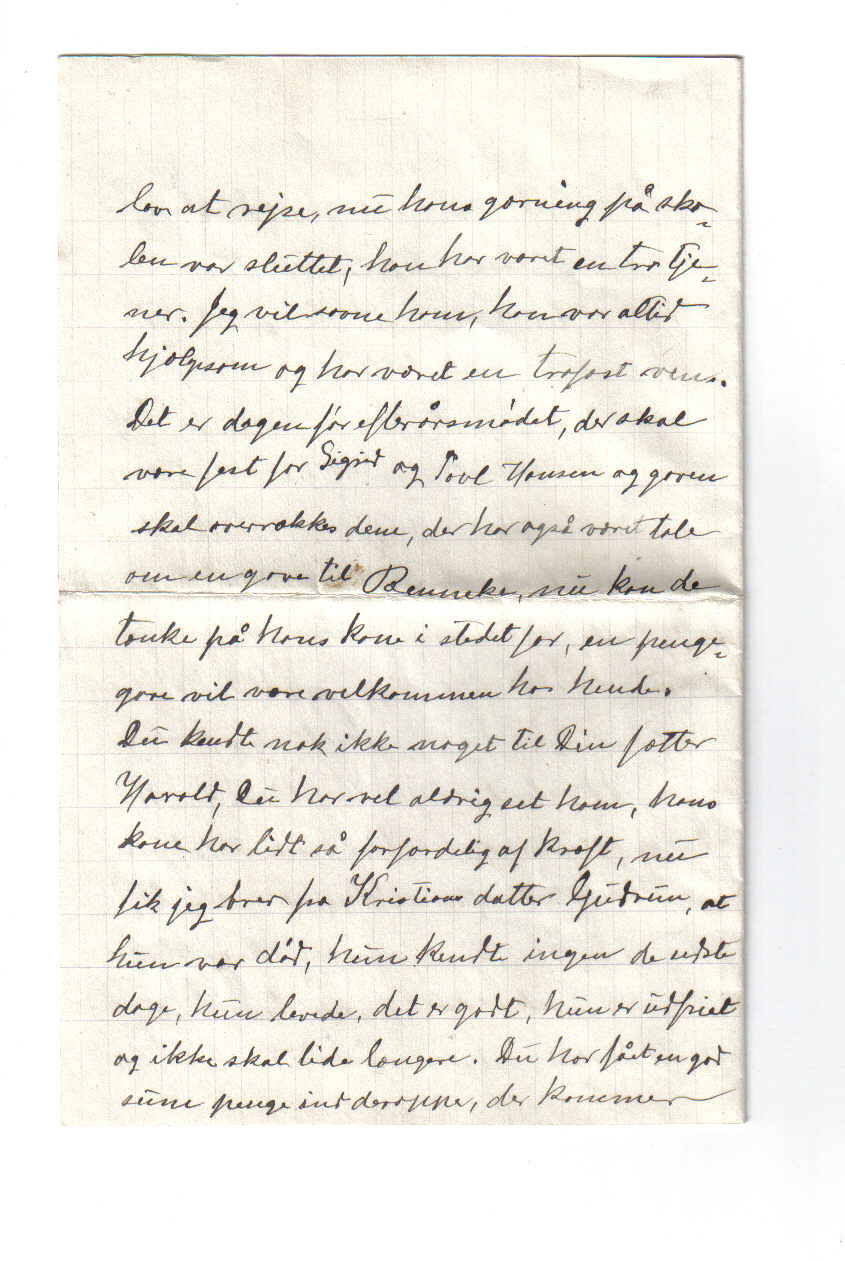 lov at rejse, nu hans gærning på sko-
len var sluttet, han har været en tro tje-
ner. Jeg vil savne ham, han var altid
hjælpsom og har været en trofast ven.
Det er dagen før efterårsmødet, der skal
være fest for Sigrid og Povl Hansen og gaven
skal overrækkes dem, der har også været tale
om en gave til Benneke, nu kan de
tænke på hans kone i stedet for, en penge-
gave vil være velkommen hos hende.
Du kendte nok ikke noget til Din fætter
Harald, Du har vel aldrig set ham, hans
kone har lidt så forfærdelig af kræft, nu
fik jeg brev fra Kristians datter Gudrun, at
hun var død, hun kendte ingen de sidste
dage, hun levede, det er godt, hun er udfriet
og ikke skal lide længere. Du har fået en god
sum penge ind deroppe, der kommer